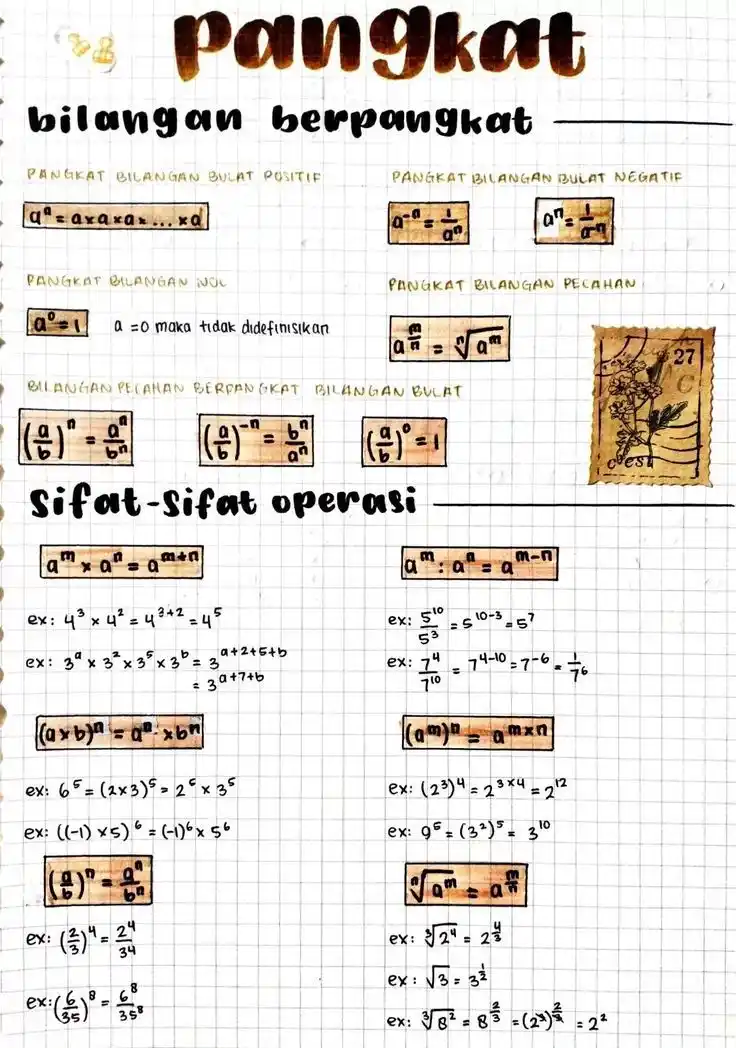 pangkat
bilangan berpangkat
PANGKAT BILANGAN BULAT POSITIF
aⁿ = a x a x a x ... x a
PANGKAT BILANGAN BULAT NEGATIF
a⁻ⁿ = 1/aⁿ
aⁿ = 1/a⁻ⁿ
PANGKAT BILANGAN NOL
a⁰ = 1 a = 0 maka tidak didefinisikan
PANGKAT BILANGAN PECAHAN
a^(m/n) = ⁿ√(a^m)
27
C
c'est
BILANGAN PECAHAN BERPANGKAT BILANGAN BULAT
(a/b)ⁿ = aⁿ/bⁿ
(a/b)⁻ⁿ = bⁿ/aⁿ
(a/b)⁰ = 1
Sifat-Sifat operasi
a^m x a^n = a^(m+n)
ex: 4³ x 4² = 4^(3+2) = 4⁵
ex: 3^a x 3² x 3⁵ x 3^b = 3^(a+2+5+b)
= 3^(a+7+b)
a^m : a^n = a^(m-n)
ex: 5^10/5³ = 5^(10-3) = 5⁷
ex: 7⁴/7^10 = 7^(4-10) = 7^(-6) = 1/7⁶
(a x b)ⁿ = aⁿ x bⁿ
ex: 6⁵ = (2x3)⁵ = 2⁵ x 3⁵
ex: ((-1) x 5)⁶ = (-1)⁶ x 5⁶
(a^m)^n = a^(m x n)
ex: (2³)⁴ = 2^(3x4) = 2^12
ex: 9⁵ = (3²)⁵ = 3^10
(a/b)ⁿ = aⁿ/bⁿ
ex: (2/3)⁴ = 2⁴/34
ex: (6/35)⁸ = 6⁸/35⁸
ⁿ√(a^m) = a^(m/n)
ex: ³√(2⁴) = 2^(4/3)
ex: √3 = 3^(1/2)
ex: ³√(8²) = 8^(2/3) = (2³)^(2/3) = 2²